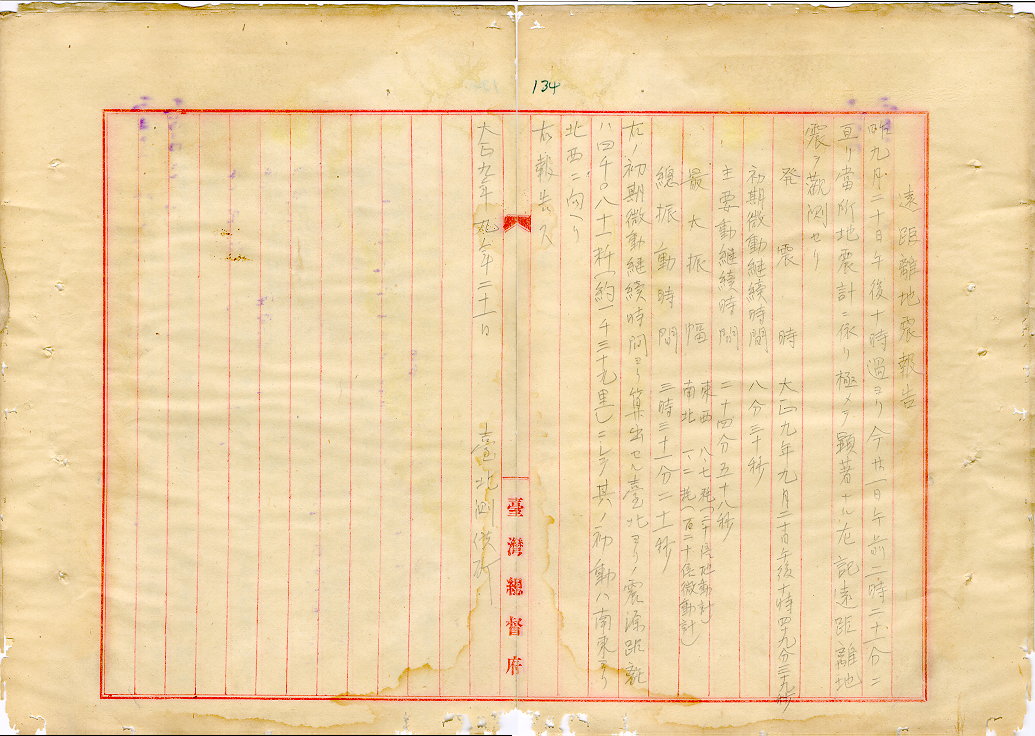 134
遠距離地震報告
昨九月二十日午後十時過ヨリ今廿一日午前二時二十一分ニ
亘リ當所地震計ニ依リ極メテ顕著ナル左記遠距離地
震ヲ観測セリ
発震時 大正九年九月二十日午後十時四十九分三十九秒
初期微動継続時間 八分三十秒
主要動継続時間 二十四分五十八秒
最大振幅 東西 八七粍(二十倍地動計)
南北 一、二粍(百二十倍微動計)
總振動時間 三時三十一分二十一秒
右ノ初期微動継続時間ヨリ算出セル臺北ヨリノ震源距離
ハ四千〇八十一粁(約一千三十九里)ニシテ其ノ初動ハ南東ヨリ
北西ニ向ヘリ
右報告ス
大正九年 九年二十一日
臺北測候所
臺灣總督府